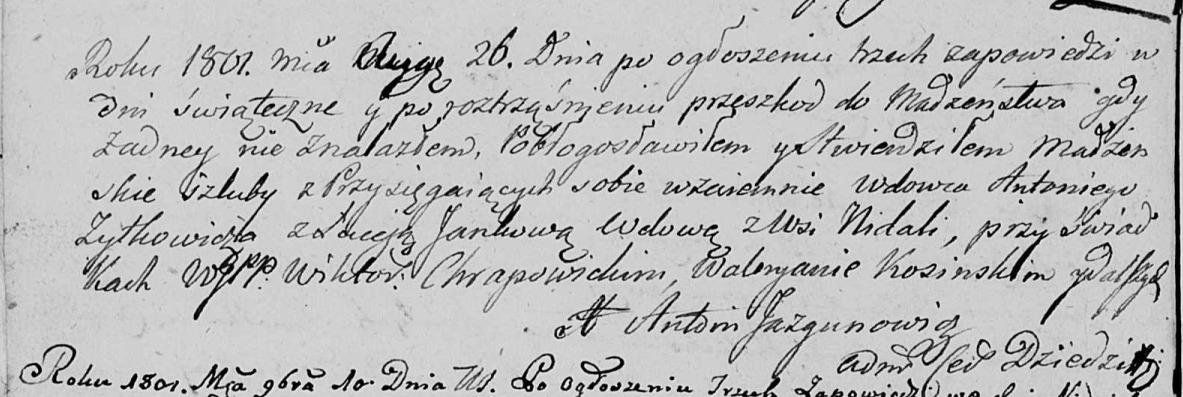 Roku 1801. Mca 26. Dnia po ogłoszeniu trzech zapowiedzi w
dni świąteczne y po roztrząśnieniu przeszkod do Małżeństwa gdy
żadney nie znalazłem, Pobłogosławiłem y stwierdziłem Małżeń
skie szluby z Przysięgaiących sobie wzaiemnie Wdowca Antoniego
Zytkowicza z Łucyą Jankową Wdową z Wsi Nidali, przy świad
kach WJPP. Wiktor: Chrapowickim, Waleryanie Kosinskim
X Antoni Jazgunowicz
adm: Dziedzi
Roku 1801. Mca 9bra 10. Dnia Po Ogłoszeniu Trzech Zapowiedzi